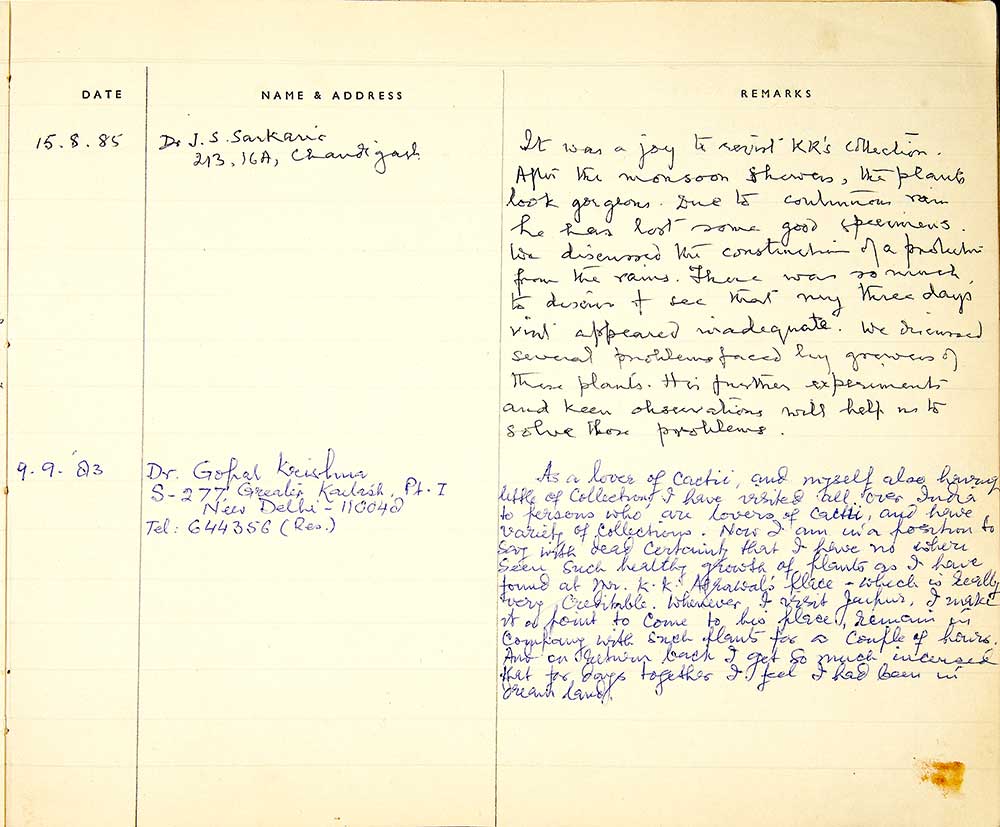 DATE NAME & ADDRESS REMARKS
15.8.85 Dr J.S. Sarkaria
213, 16A, Chandigarh
It was a joy to revisit KR's collection.
After the monsoon showers, the plants
look gorgeous. Due to continuous rain
he has lost some good specimens.
We discussed the construction of a protection
from the rains. There was so much
to discuss & see that my three days
visit appeared inadequate. We discussed
several problems faced by growers of
these plants. His further experiments
and keen observations will help us to
solve those problems.
9.9.'83 Dr. Gopal Krishna
S-277 Greater Kailash, Pt. I
New Delhi - 110048
Tel: 644356 (Res.)
As a lover of Cactii, and myself also having
little of Collection, I have visited all over India
to persons who are lovers of Cactii, and have
variety of Collections. Now I am in a position to
say with dead Certainty that I have no where
seen such healthy growth of plants as I have
found at Mr. K.R. Agrawal's place - which is really
very Creditable. Whenever I visit Jaipur, I make
it a point to Come to his place, remain in
Company with such plants for a Couple of hours.
And on return back I get so much incensed
that for days together I feel I had been in
dream land.